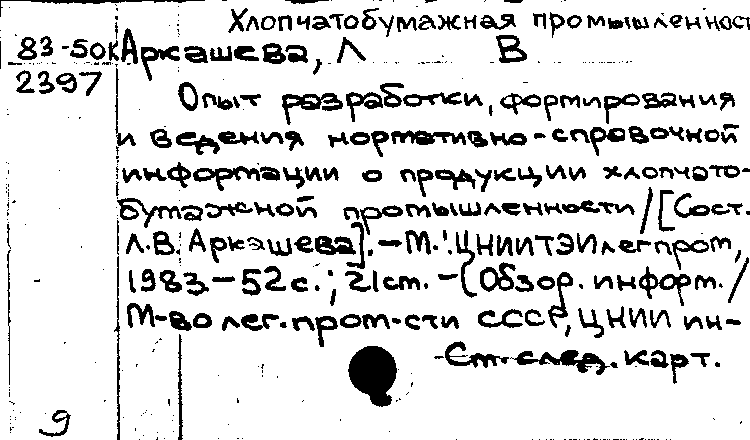 Хлопчатобумажная промышленност
83-50К Аркашева, Л В
2397
Опыт разработки, формирования
и ведения нормативно-справочной
информации о продукции хлопчато-
бумажной промышленности/[Сост.
Л.В. Аркашева]. - М.: ЦНИИТЭИлегпром,
1983. - 52 с.; 21 см. - (Обзор. информ./
М-во лег. пром-сти СССР, ЦНИИ ин-
См. след. карт.
9